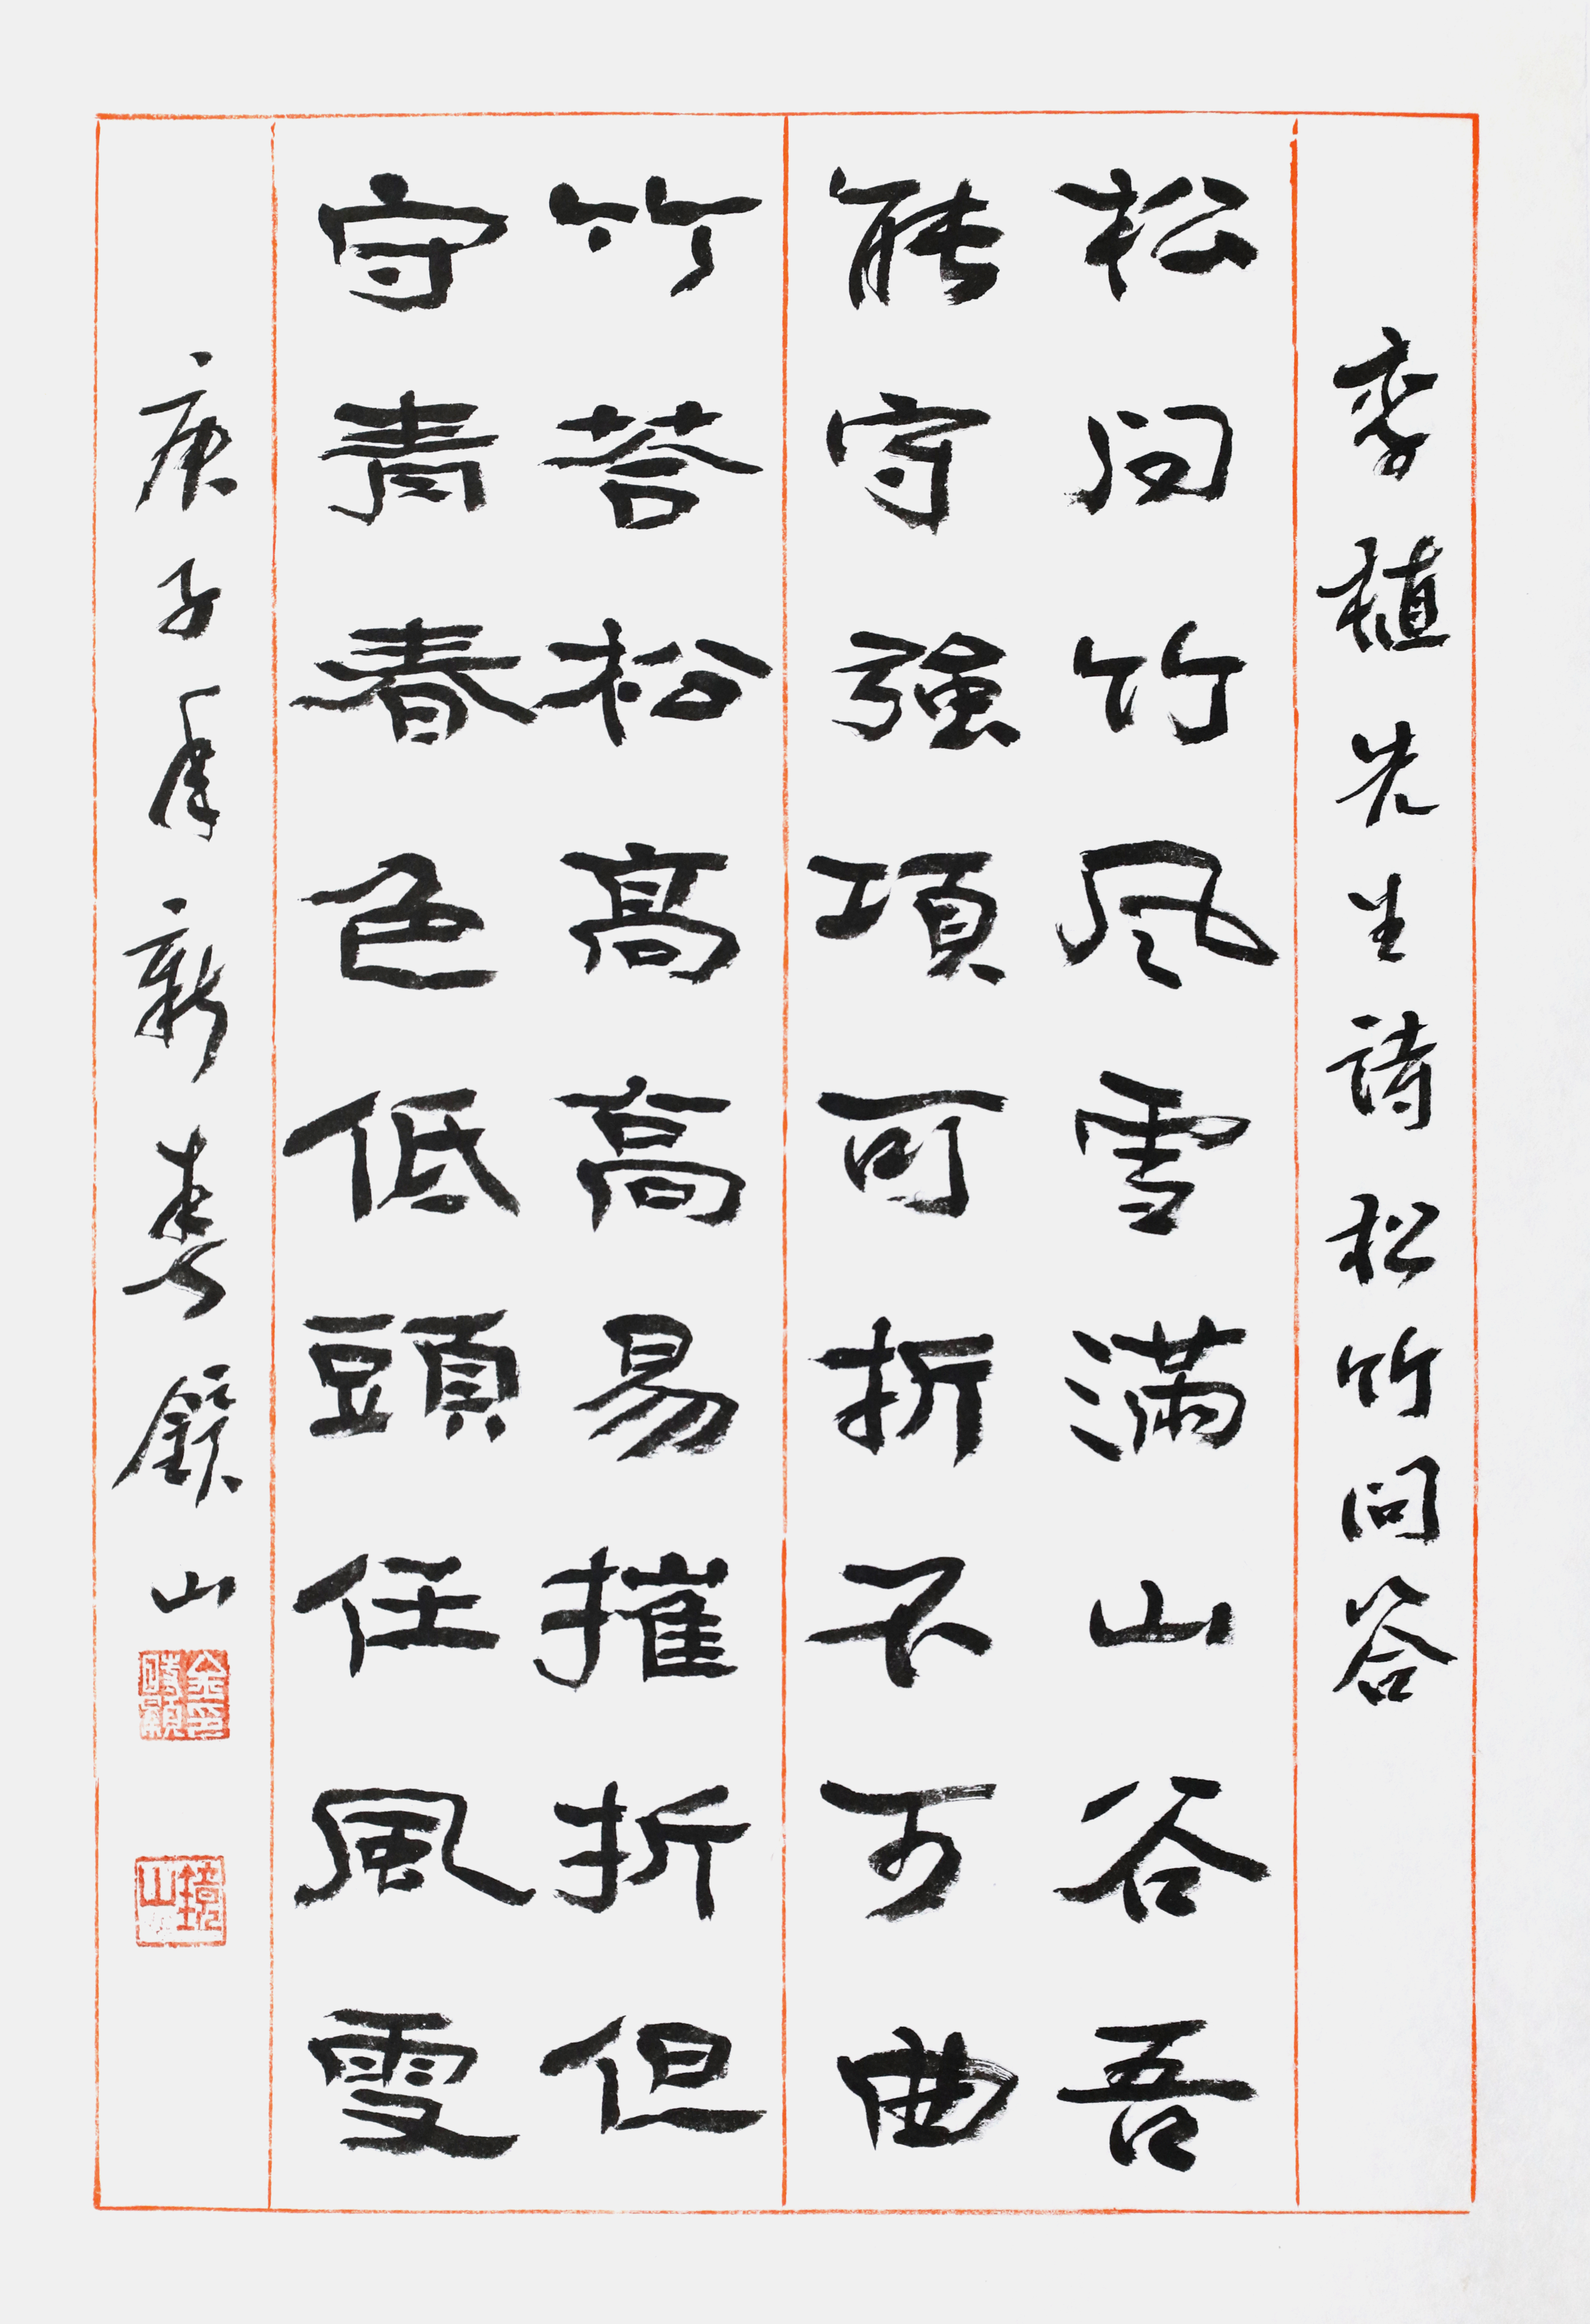 李植先生詩松竹問答
松问竹风雪滿山谷吾
能守強項可折不可曲
竹荅松高高易摧折但
守青春色低頭任風雪
庚子年新春鏡山